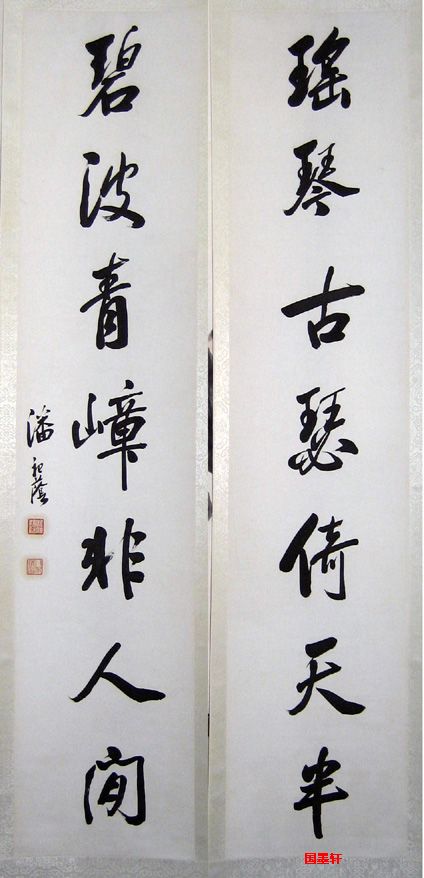 瑶琴古瑟倚天半
碧波青嶂非人间
潘祖荫
国墨轩